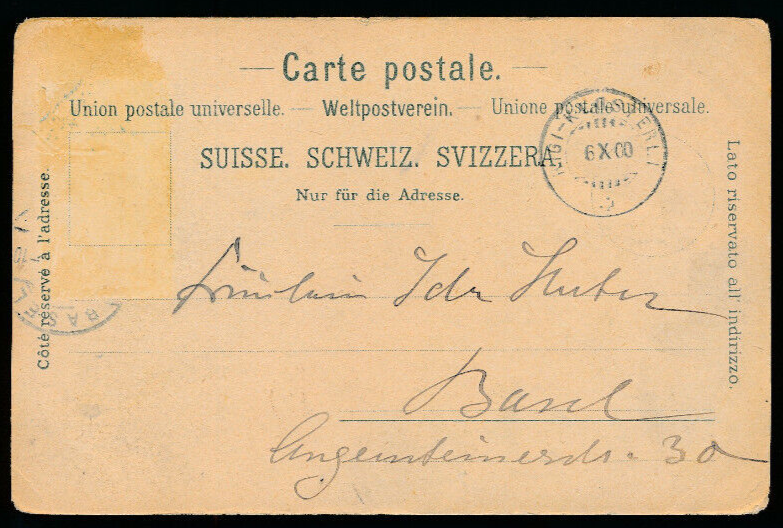 Carte postale.
Union postale universelle. — Weltpostverein. — Unione postale universale.
SUISSE. SCHWEIZ. SVIZZERA.
Nur für die Adresse.
Côté réservé à l'adresse.
Lato riservato all' indirizzo.
RIGI-KLÖSTERLI
6 X 00
BASEL
Fräulein Ida Huber
Basel
Angensteinerstr. 30